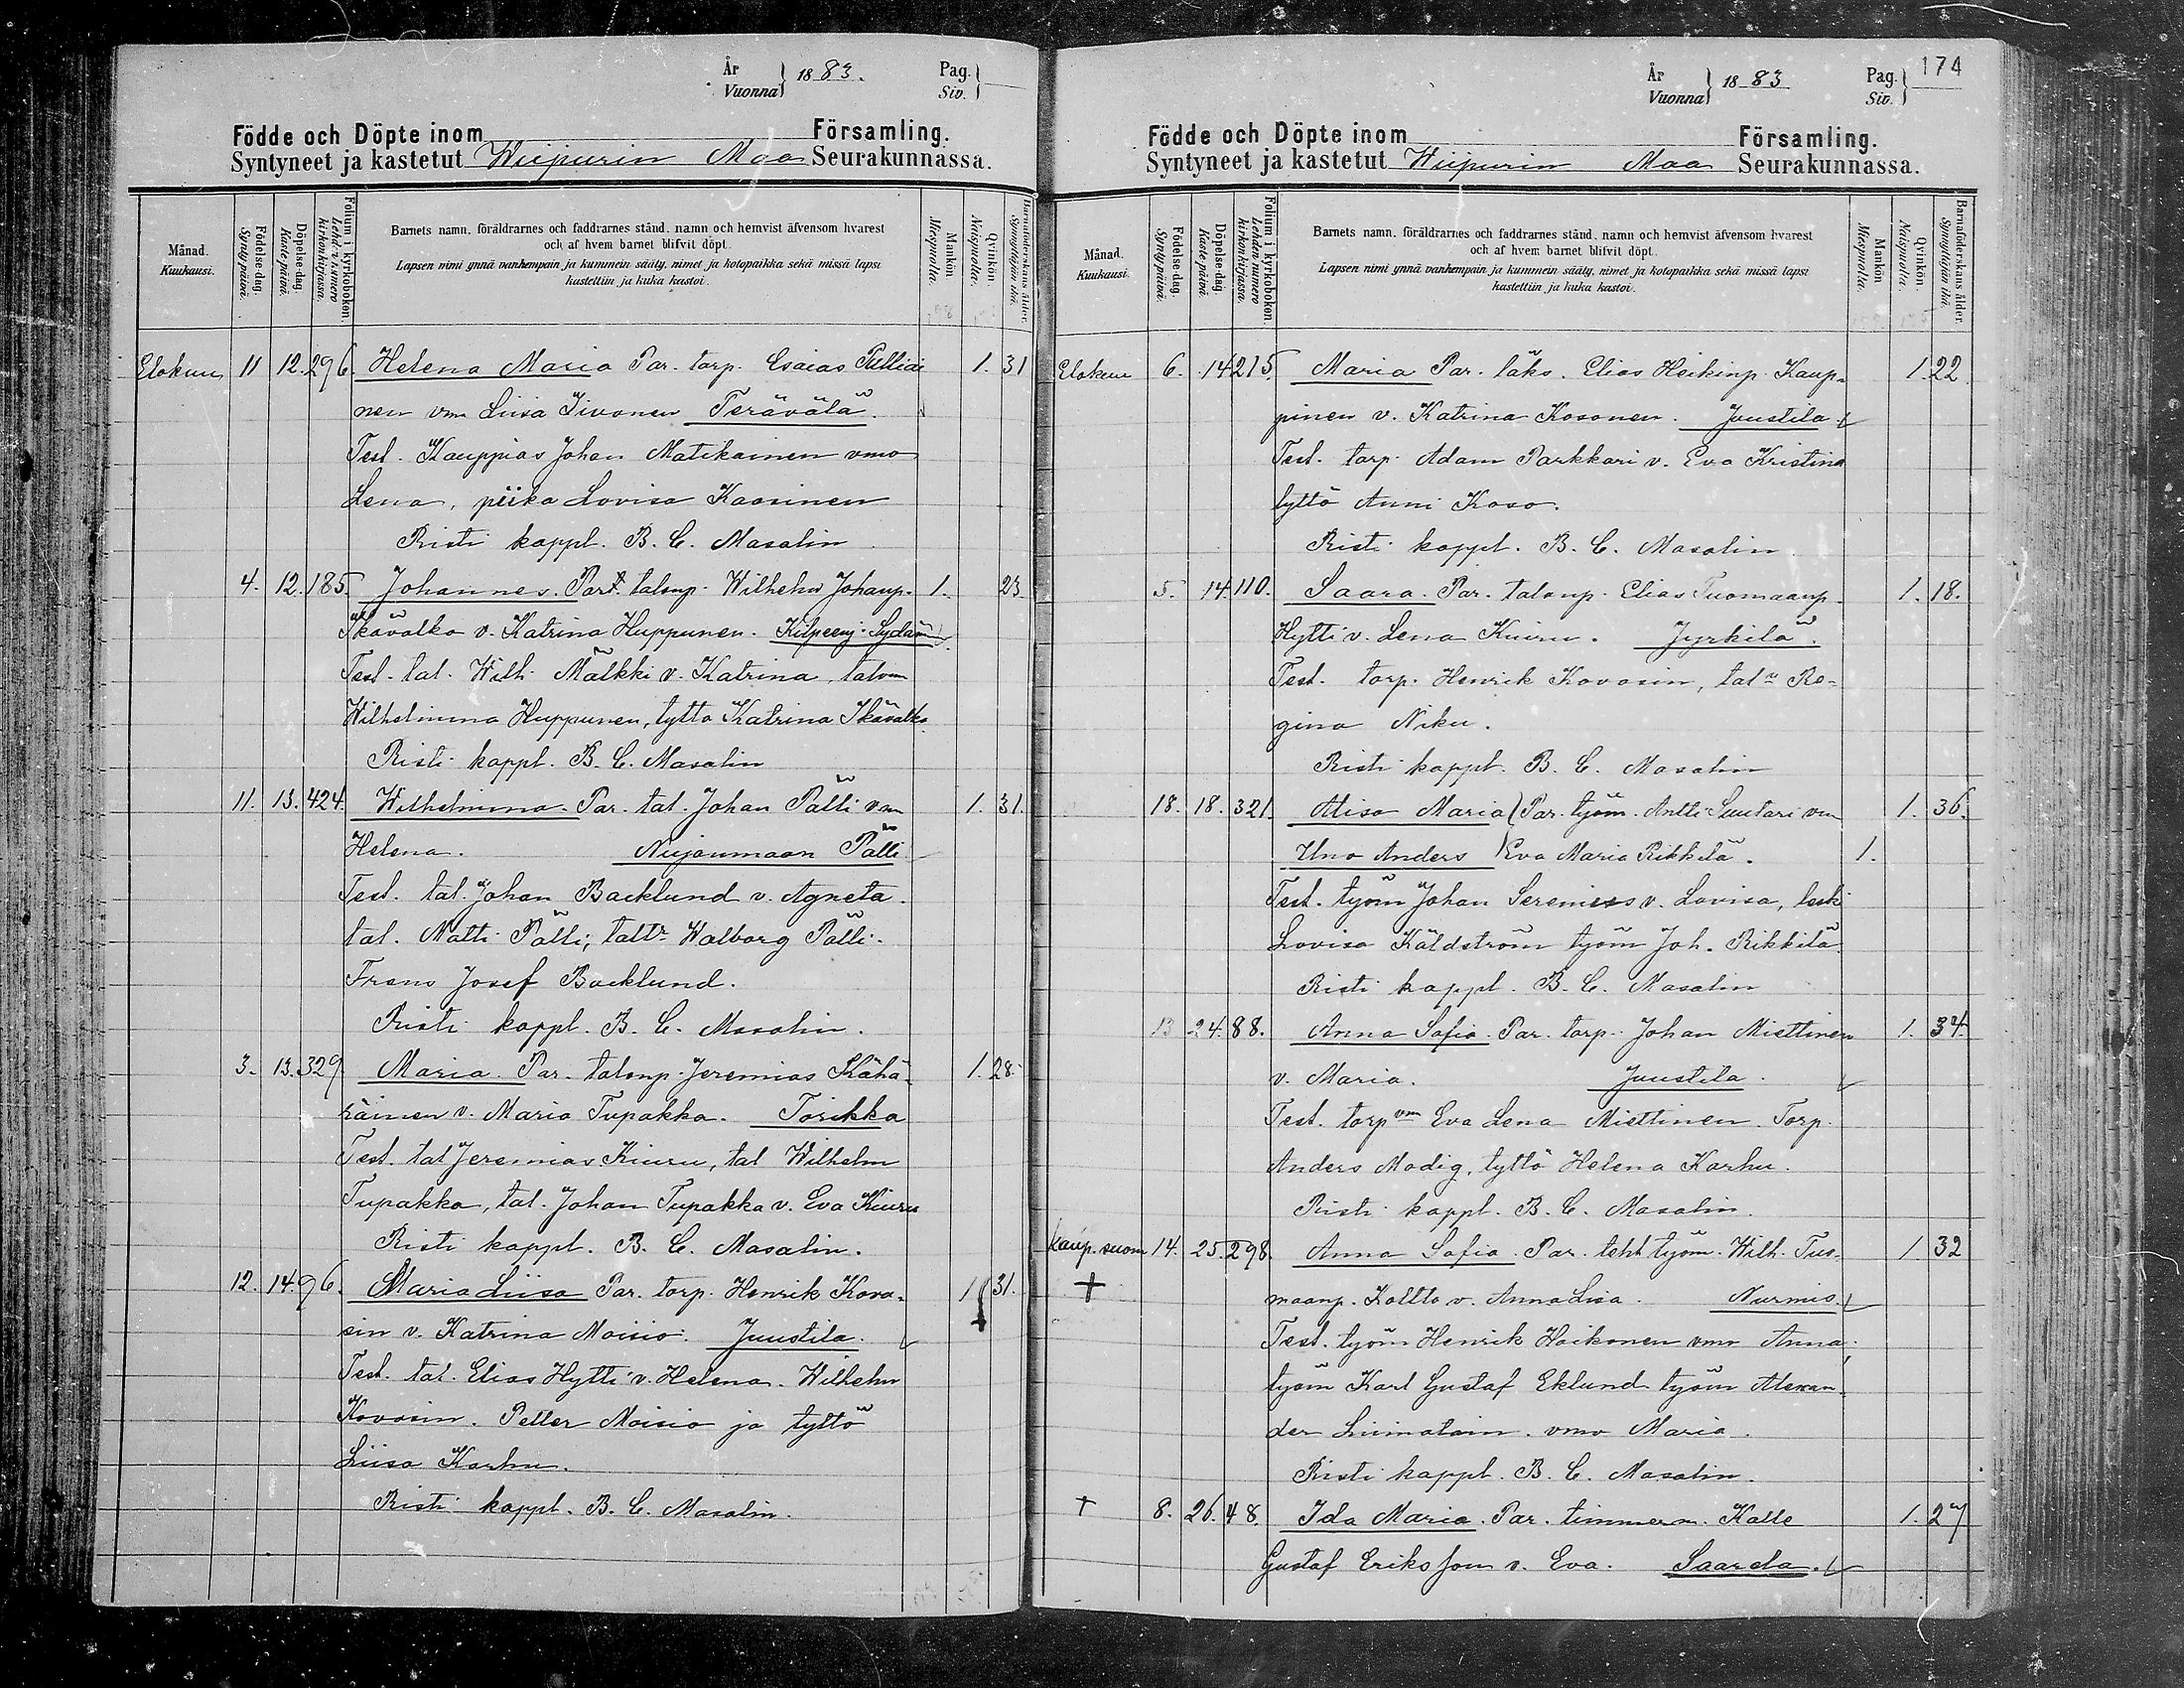 År
Vuonna } 1883. Pag.
Siv. }
Födde och Döpte inom Församling.
Syntyneet ja kastetut Wiipurin Maa Seurakunnassa.
Månad.
Kuukausi.
Födelse-dag.
Synty päivä.
Döpelse-dag.
Kaste päivä.
Folium i kyrkoboken.
Lehden numero kirkonkirjassa.
Barnets namn, föräldrarnes och faddrarnes stånd, namn och hemvist äfvensom hvarest
och af hvem barnet blifvit döpt.
Lapsen nimi ynnä vanhempain ja kummein sääty, nimet ja kotopaikka sekä missä lapsi
kastettiin ja kuka kastoi.
Mankön.
Miespuolta.
Qvinkön.
Naispuolta.
Barnaföderskans ålder.
Synnyttäjän ikä.
Elokuu 11 12. 296. Helena Maria Par. torp. Esaias Pulliai 1. 31
nen vm Liisa Iivonen Terävälä.
Test. Kauppias Johan Matikainen vmo
Lena, piika Lovisa Kaasinen
Risti kappl. B. C. Masalin
4. 12. 185. Johannes. Par. talonp. Wilhelm Johanp. 1. 23
Ikävalko v. Katrina Huppunen. Kilpeenj. Sydän
Test. tal. Wilh. Mälkki v. Katrina, talvm
Wilhelmina Huppunen, tyttö Katrina Ikävalko
Risti kappl. B. C. Masalin
11. 13. 424. Wilhelmina. Par. tal. Johan Pälli vm 1. 31.
Helena. Nuijanmaan Pälli
Test. tal. Johan Backlund v. Agneta.
tal. Matti Pälli, taltr Walborg Pälli.
Frans Josef Backlund.
Risti kappl. B. C. Masalin.
3. 13. 329 Maria. Par. talonp. Jeremias Kähä- 1. 28.
räinen v. Maria Tupakka. Törikkä
Test. tal Jeremias Kiuru, tal Wilhelm
Tupakka, tal. Johan Tupakka v. Eva Kiuru
Risti kappl. B. C. Masalin.
12. 14. 96. Maria Liisa Par. torp. Henrik Kova- 1 31.
sin v. Katrina Moisio. Juustila.
Test. tal. Elias Hytti v. Helena. Wilhelm
Kovasin. Petter Moisio ja tyttö
Liisa Karhu.
Risti kappl. B. C. Masalin.
År
Vuonna } 1883 Pag.
Siv. } 174
Födde och Döpte inom Församling.
Syntyneet ja kastetut Wiipurin Maa Seurakunnassa.
Månad.
Kuukausi.
Födelse-dag.
Synty päivä.
Döpelse-dag.
Kaste päivä.
Folium i kyrkoboken.
Lehden numero kirkonkirjassa.
Barnets namn, föräldrarnes och faddrarnes stånd, namn och hemvist äfvensom hvarest
och af hvem barnet blifvit döpt.
Lapsen nimi ynnä vanhempain ja kummein sääty, nimet ja kotopaikka sekä missä lapsi
kastettiin ja kuka kastoi.
Mankön.
Miespuolta.
Qvinkön.
Naispuolta.
Barnaföderskans ålder.
Synnyttäjän ikä.
Elokuu 6. 14 215. Maria Par. läks. Elias Heikinp. Kaup- 1. 22
pinen v. Katrina Kosonen. Juustila
Test. torp. Adam Parkkari v. Eva Kristina
tyttö Anni Koso.
Risti kappl. B. C. Masalin
5. 14. 110. Saara. Par. talonp. Elias Tuomaanp. 1. 18.
Hytti v. Lena Kuiru. Jyrkilä.
Test. torp. Henrik Kovasin, tal Re-
gina Niku.
Risti kappl. B. C. Masalin
18. 18. 321. Alisa Maria } Par. työm. Antti Suutari vm 1. 36.
Uno Anders } Eva Maria Rikkilä. 1.
Test. työm Johan Seremies v. Lovisa, leski
Lovisa Käldström työm Joh. Rikkilä.
Risti kappl. B. C. Masalin
13 24. 88. Anna Sofia. Par. torp. Johan Miettinen 1. 34.
v. Maria. Juustila.
Test. torp vm Eva Lena Miettinen. Torp.
Anders Modig, tyttö Helena Karhu.
Risti kappl. B. C. Masalin.
Kaup. suom 14. 25. 298. Anna Sofia. Par. teht työm. Wilh. Tuo- 1 32
+ maanp. Koltto v. Anna Liisa. Nurmis.
Test. työm Henrik Hoikonen vmo Anna,
työm Karl Gustaf Eklund työm Alexan-
der Liimatain. vmo Maria.
Risti kappl. B. C. Masalin.
+ 8. 26. 48. Ida Maria. Par. timmerm. Kalle 1. 27
Gustaf Eriksson v. Eva. Saarela.